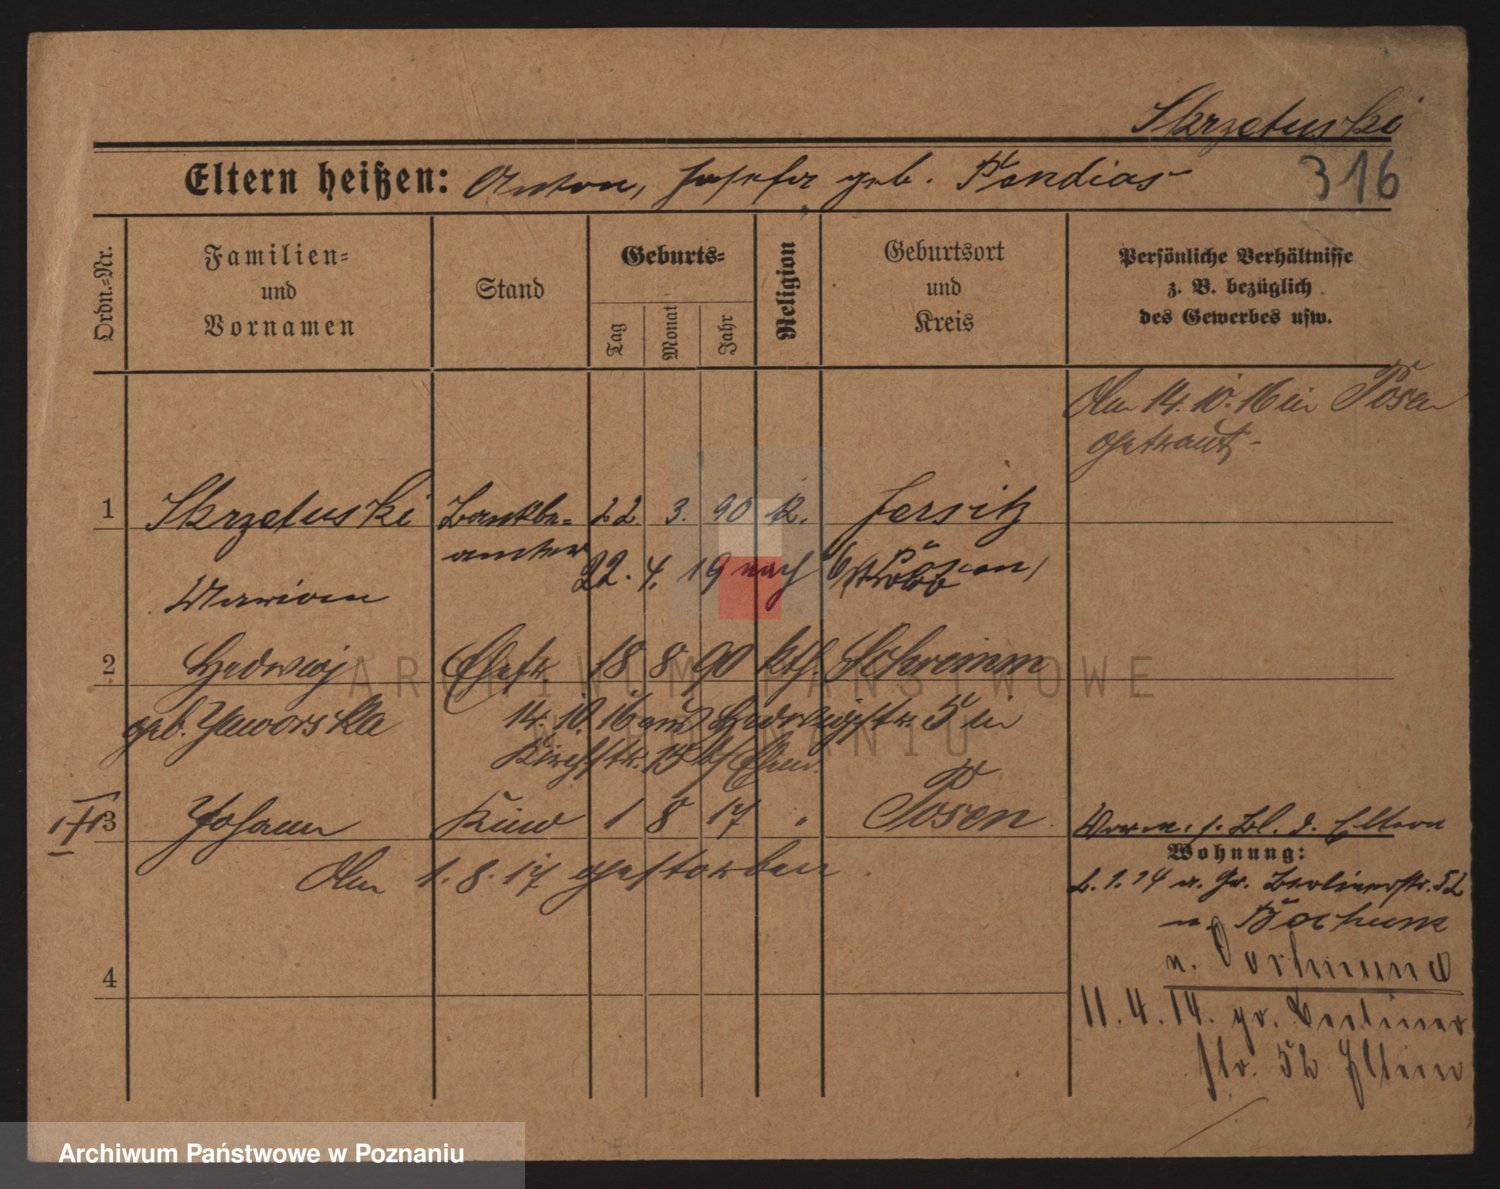 Skrzetuski
316
Eltern heißen: Anton, Josefa geb. Pendias
Ordn.-Nr.
Familien-
und
Vornamen
Stand
Geburts-
Tag
Monat
Jahr
Religion
Geburtsort
und
Kreis
Persönliche Verhältnisse
z. B. bezüglich
des Gewerbes usw.
Am 14. 10. 16 in Posen
getraut
1 Skrzetuski Bankbe- 22. 3. 90 k. Jersitz
amter
22. 4. 19 nach Posen,
Marian
2 Hedwig Ehefr. 18 8 90 kth. Schrimm
geb. Jaworska
14. 10. 16 aus Hedwigstr. 5 in
Kirchstr. 15 Ehem.
3 Johann Kind 1 8 17 " Posen
Am 1. 8. 17 gestorben
4
Vorm. s. Bl. d. Eltern
Wohnung:
2. 1. 14 n. Gr. Berlinerstr. 52
n. Bochum
n. Dortmund
11. 4. 14. gr. Berliner
str. 52 Eltern
ARCHIWUM PAŃSTWOWE
W POZNANIU
Archiwum Państwowe w Poznaniu